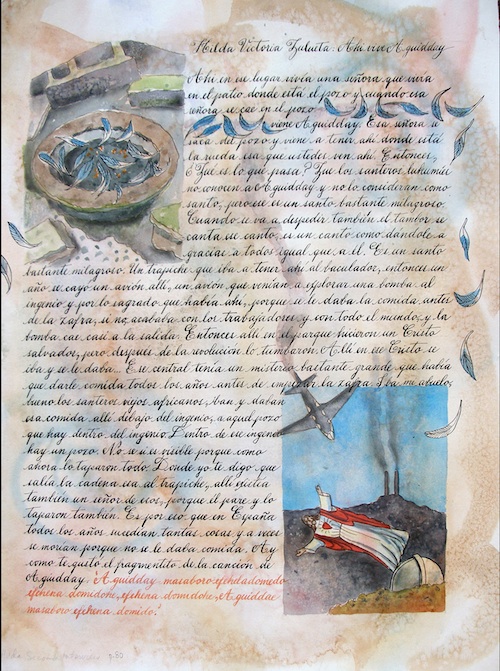 Hilda Victoria Zulueta: Ahí vive Aguidday
Ahí en ese lugar vivía una señora que vivía
en el patio donde está el pozo y cuando esa
señora se cae en el pozo
viene Aguidday. Esa señora se
saca del pozo y viene a tener ahí donde está
la rueda esa que ustedes ven ahí. Entonces,
¿Qué es lo que pasa? Que los santeros lukumises
no conocen a Aguidday y no lo consideran como
santo, pero ese es un santo bastante milagroso.
Cuando se va a despedir también el tambor se
canta ese canto, es un canto como dándole a
gracias a todos igual que a él. Es un santo
bastante milagroso. Un trapiche que iba a tener ahí al basculador, entonces un
año se cayó un avión allí, un avión que venían a explotar una bomba al
ingenio y por lo sagrado que había ahí, porque se le daba la comida antes
de la zafra, si no acababa con los trabajadores y con todo el mundo, y la
bomba cae casi a la salida. Entonces allí en el parque hicieron un Cristo
salvador, pero después de la revolución lo tumbaron. Allí en ese Cristo se
iba y se le daba. Ese central tenía un misterio bastante grande que había
que darle comida todos los años antes de empezar la zafra. Iba mi abuelo,
bueno los santeros viejos, africanos, iban y daban
esa comida allí debajo del ingenio, a aquel pozo
que hay dentro del ingenio. Dentro de ese ingenio
hay un pozo. No sé si es visible porque como
ahora lo taparon todo. Donde yo te digo que
salía la cadena esa al trapiche, allí
también un señor de esos, porque él pare y lo
taparon también. Es por eso que en España
todos los años sucedían tantas cosas y a veces
se morían porque no se le daba comida. Ay
como te gusto el fragmentito de la canción de
Aguidday. "Aguidday masaboro
ejehena domidohe, ejehena domidohe, Aguiddae
masaboro ejehena domido."